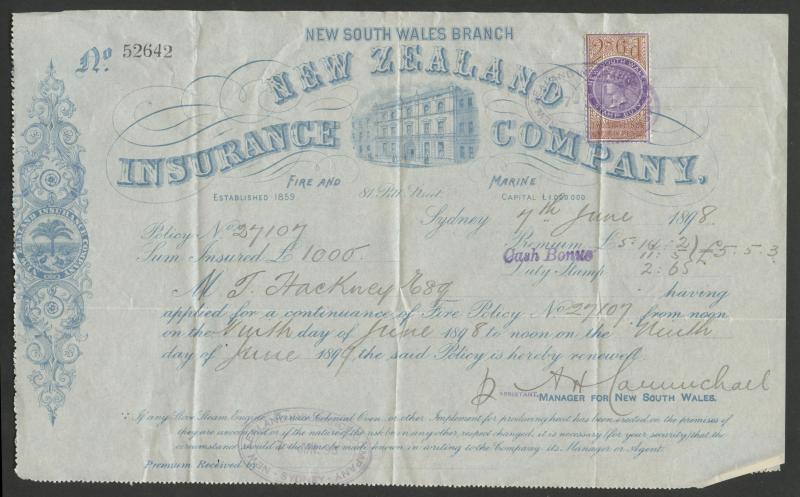 NEW SOUTH WALES BRANCH
No. 52642
2s 6d
NEW SOUTH WALES
STAMP DUTY
NEW ZEALAND
INSURANCE COMPANY,
FIRE AND MARINE
ESTABLISHED 1859 81 Pitt Street CAPITAL £1,000,000
Sydney 7th June 1898.
Policy No 27107 Premium £5.14.2
Sum Insured £ 1000. Cash Bonus 11.5 £5.5.3
Duty Stamp 2.6
M T. Hackney Esq having
applied for a continuance of Fire Policy No 27107 from noon
on the Ninth day of June 1898 to noon on the Ninth
day of June 1899 the said Policy is hereby renewed.
ASSISTANT MANAGER FOR NEW SOUTH WALES.
If any Stove Steam Engine, Furnace Colonial Oven, or other Implement for producing heat has been erected on the premises
they are occupied or if the nature of the risk be in any other respect changed, it is necessary for your security that the
circumstance should at the time be made known in writing to the Company its Manager or Agent.
Premium Received by
NEW ZEALAND INSURANCE COMPANY